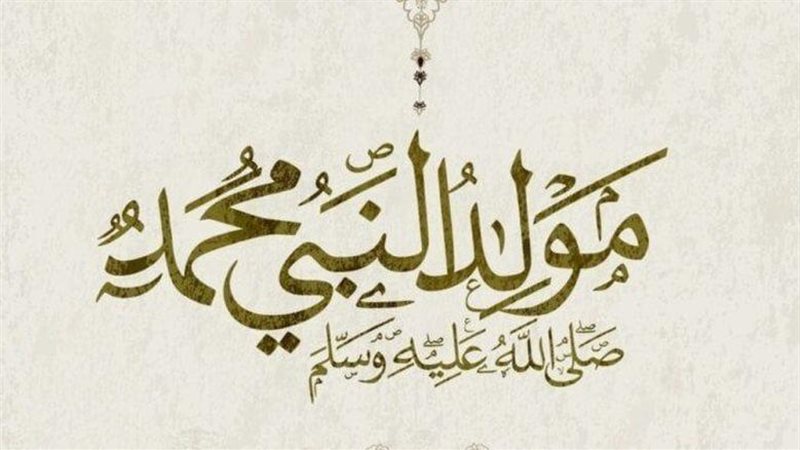 مَوْلِدُ النَّبِي مُحَمَّدٍ
صَلَّى اللَّهُ عَلَيْهِ وَسَلَّمَ